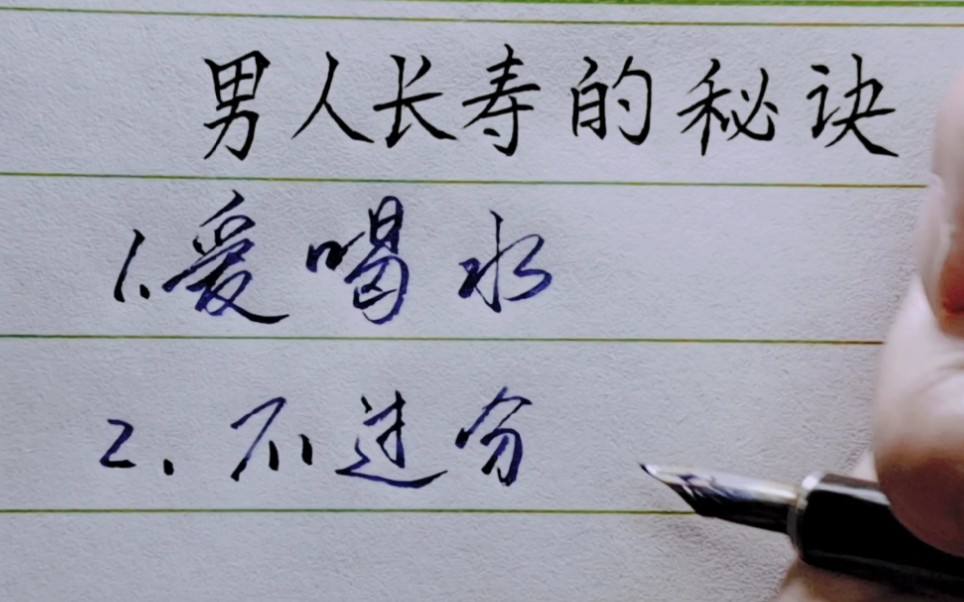 男人长寿的秘诀
1.爱喝水
2.不过分